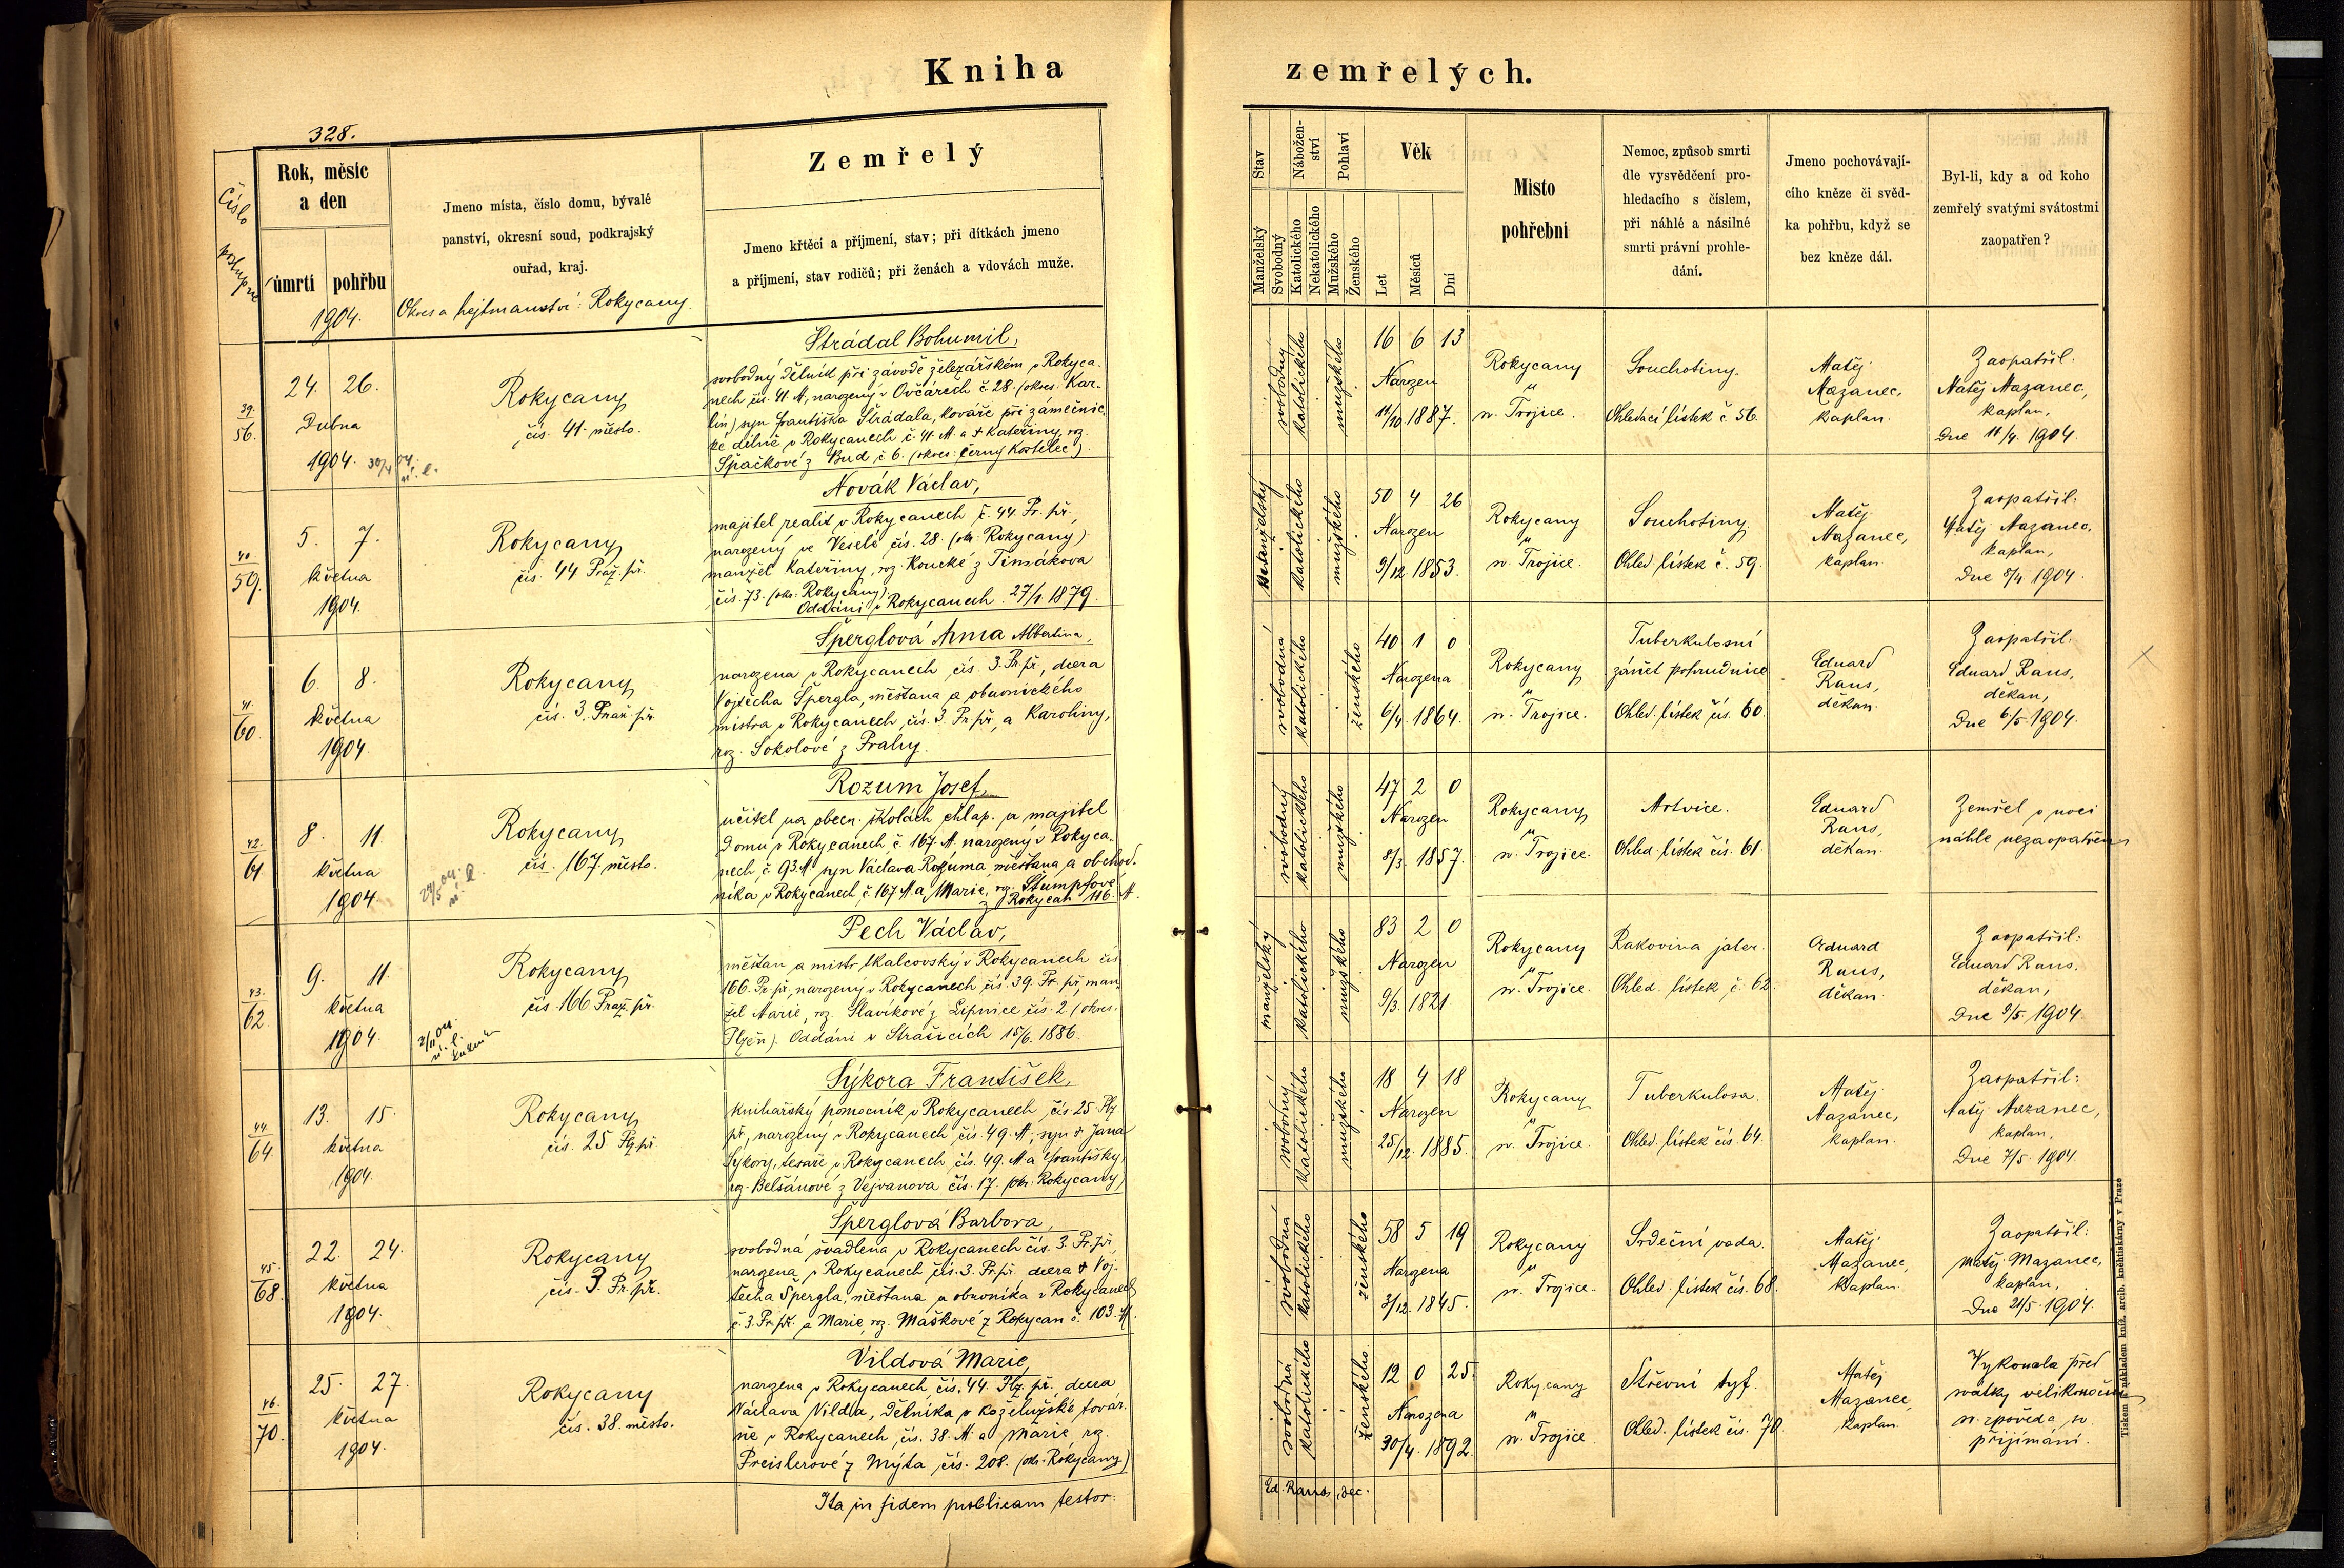 Kniha
zemřelých.
328.
Číslo
postupné
Rok, měsíc
a den
úmrtí
pohřbu
1904.
Jmeno místa, číslo domu, bývalé
panství, okresní soud, podkrajský
ouřad, kraj.
Okres a hejtmanství: Rokycany.
Zemřelý
Jmeno křtěcí a příjmení, stav; při dítkách jmeno
a příjmení, stav rodičů; při ženách a vdovách muže.
Stav
Manželský
Svobodný
Nábožen-
ství
Katolického
Nekatolického
Pohlaví
Mužského
Ženského
Věk
Let
Měsíců
Dní
Místo
pohřební
Nemoc, způsob smrti
dle vysvědčení pro-
hledacího s číslem,
při náhlé a násilné
smrti právní prohle-
dání.
Jmeno pochovávají-
cího kněze či svěd-
ka pohřbu, když se
bez kněze dál.
Byl-li, kdy a od koho
zemřelý svatými svátostmi
zaopatřen?
39.
56.
24. 26.
Dubna
1904.
30/4 04.
ú. l.
Rokycany
čís. 41. město.
Štrádal Bohumil,
svobodný dělník při závodě železářském v Rokyca-
nech čís. 41. M, narozený v Ovčárech č. 28. (okres: Kar-
lín) syn Františka Štrádala, kováře při zámečnic-
ké dílně v Rokycanech č. 41. M. a † Kateřiny, roz.
Špačkové z Bud č 6. (okres: Černý Kostelec).
svobodný
katolického
mužského
16 6 13
Narozen
11/10. 1887.
Rokycany
u
sv. Trojice.
Souchotiny.
Ohledací lístek č. 56.
Matěj
Mazanec,
kaplan.
Zaopatřil.
Matěj Mazanec,
kaplan,
Dne 11/4. 1904.
40.
59.
5. 7.
května
1904.
Rokycany
čís. 44 Praž. př.
Novák Václav,
majitel realit v Rokycanech č. 44. Pr. př.,
narozený ve Veselé čís. 28. (okr. Rokycany)
manžel Kateřiny, roz. Koucké z Těmákova
čís. 73. (okr. Rokycany).
Oddáni v Rokycanech 27/1. 1879.
manželský
katolického
mužského
50 4 26
Narozen
9/12. 1853.
Rokycany
u
sv. Trojice.
Souchotiny.
Ohled. lístek č. 59.
Matěj
Mazanec,
kaplan.
Zaopatřil:
Matěj Mazanec,
kaplan,
Dne 8/4 1904.
41.
60.
6. 8.
května
1904.
Rokycany
čís. 3. Praž. př.
Šperglová Anna Albertina,
narozena v Rokycanech čís. 3. Pr. př., dcera
Vojtěcha Špergla, měšťana a obuvnického
mistra v Rokycanech, čís. 3. Pr. př., a Karoliny,
roz. Sokolové z Prahy.
svobodná
katolického
ženského
40 1 0
Narozena
6/4. 1864.
Rokycany
u
sv. Trojice.
Tuberkulosní
zánět pohrudnice
Ohled. lístek čís. 60.
Eduard
Rans,
děkan.
Zaopatřil:
Eduard Rans,
děkan,
Dne 6/5. 1904.
42.
61
8. 11.
května
1904.
27/5 04.
ú. l.
Rokycany
čís. 167. město.
Rozum Josef,
učitel na obecn. školách chlap. a majitel
domu v Rokycanech, č. 167. M. narozený v Rokyca-
nech, č. 93. M. syn Václava Rozuma, měšťana a obchod.
níka v Rokycanech, č. 167 M. a Marie, roz. Štumpfové
z Rokycan 116. M.
svobodný
katolického
mužského
47 2 0
Narozen
8/3. 1857.
Rokycany
u
sv. Trojice.
Mrtvice.
Ohled. lístek čís. 61.
Eduard
Rans,
děkan.
Zemřel v noci
náhle nezaopatřen
43.
62.
9. 11.
května
1904.
2/11 04.
ú. l.
Rokycany
čís. 166 Praž. př.
Pech Václav,
měšťan a mistr tkalcovský v Rokycanech čís.
166. Pr. př., narozený v Rokycanech, čís. 39. Pr. př., man-
žel Marie, roz. Slavíkové z Lipnice čís. 2. (okres.
Plzeň). Oddáni v Strašicích 15/6. 1886.
manželský
katolického
mužského
83 2 0
Narozen
9/3. 1821.
Rokycany
u
sv. Trojice.
Rakovina jater.
Ohled. lístek č. 62.
Eduard
Rans,
děkan.
Zaopatřil:
Eduard Rans.
děkan,
Dne 9/5. 1904.
44.
64.
13. 15.
května
1904.
Rokycany
čís. 25 Plz. př.
Sýkora František,
knihařský pomocník v Rokycanech, čís. 25. Plz.
př., narozený v Rokycanech, čís. 49. M., syn † Jana
Sýkory, tesaře v Rokycanech, čís. 49. M. a Františky,
roz. Belšánové z Vejvanova čís. 17. (okr. Rokycany)
svobodný
katolického
mužského
18 4 18
Narozen
25/12. 1885.
Rokycany
u
sv. Trojice.
Tuberkulosa.
Ohled. lístek čís. 64.
Matěj
Mazanec,
kaplan.
Zaopatřil:
Matěj Mazanec,
kaplan,
Dne 7/5. 1904.
45.
68.
22. 24.
května
1904.
Rokycany
čís. 3. Pr. př.
Šperglová Barbora,
svobodná švadlena v Rokycanech čís. 3. Pr. př.,
narozena v Rokycanech čís. 3. Pr. př. dcera † Voj-
těcha Špergla, měšťana a obuvníka v Rokycanech
č. 3. Pr. př. a Marie, roz. Maškové z Rokycan č. 103. M.
svobodná
katolického
ženského
58 5 19
Narozena
3/12. 1845.
Rokycany
u
sv. Trojice.
Srdeční vada.
Ohled. lístek čís. 68.
Matěj
Mazanec,
kaplan.
Zaopatřil:
Matěj Mazanec,
kaplan,
Dne 21/5. 1904.
46.
70.
25. 27.
května
1904.
Rokycany
čís. 38. město.
Vildová Marie,
narozena v Rokycanech, čís. 44. Plz. př., dcera
Václava Vilda, dělníka v koželužské továr-
ně v Rokycanech, čís. 38. M. a Marie roz.
Preislerové z Mýta čís. 208. (okr. Rokycany)
svobodná
katolického
ženského
12 0 25.
Narozena
30/4. 1892.
Rokycany
u
sv. Trojice
Střevní tyf.
Ohled. lístek čís. 70
Matěj
Mazanec,
kaplan.
Vykonala před
svátky velikonoční
sv. zpověď a sv.
přijímání.
Ita in fidem publicam testor:
Ed. Rans, dec.
Tiskem a nákladem kníž. arcib. knihtiskárny v Praze